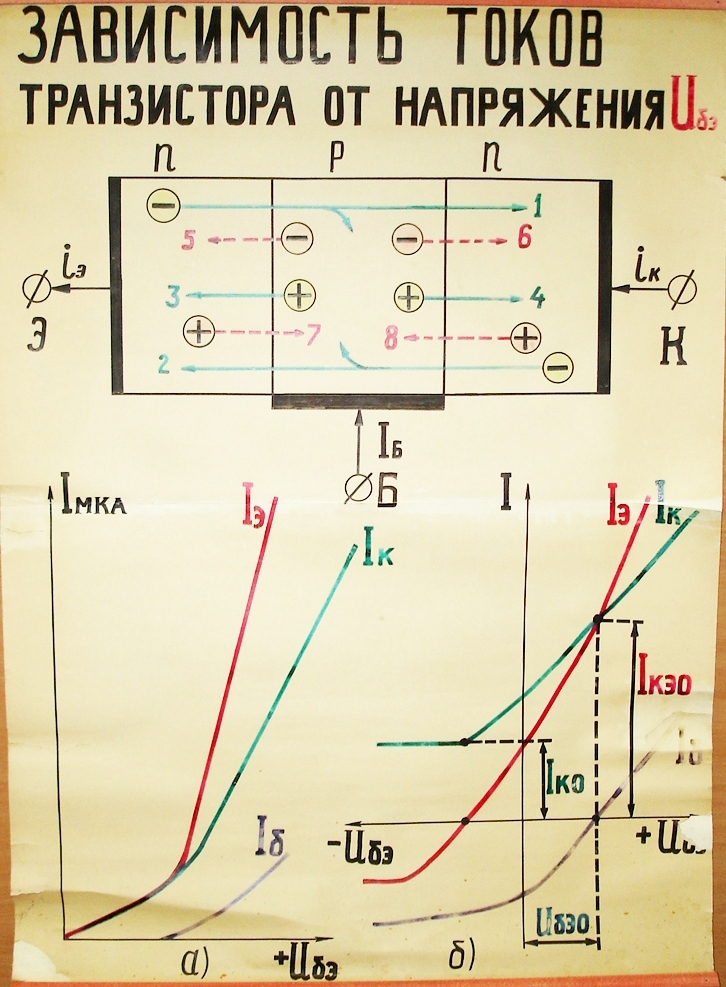 ЗАВИСИМОСТЬ ТОКОВ
ТРАНЗИСТОРА ОТ НАПРЯЖЕНИЯ Uбэ
n P n
1
5 6
iэ iк
3 4
Э К
7 8
2
IБ
Б
Iмка Iэ I Iэ Iк
Iк
Iкэо
Iко
Iб -Uбэ
Uбэо
а) +Uбэ б)